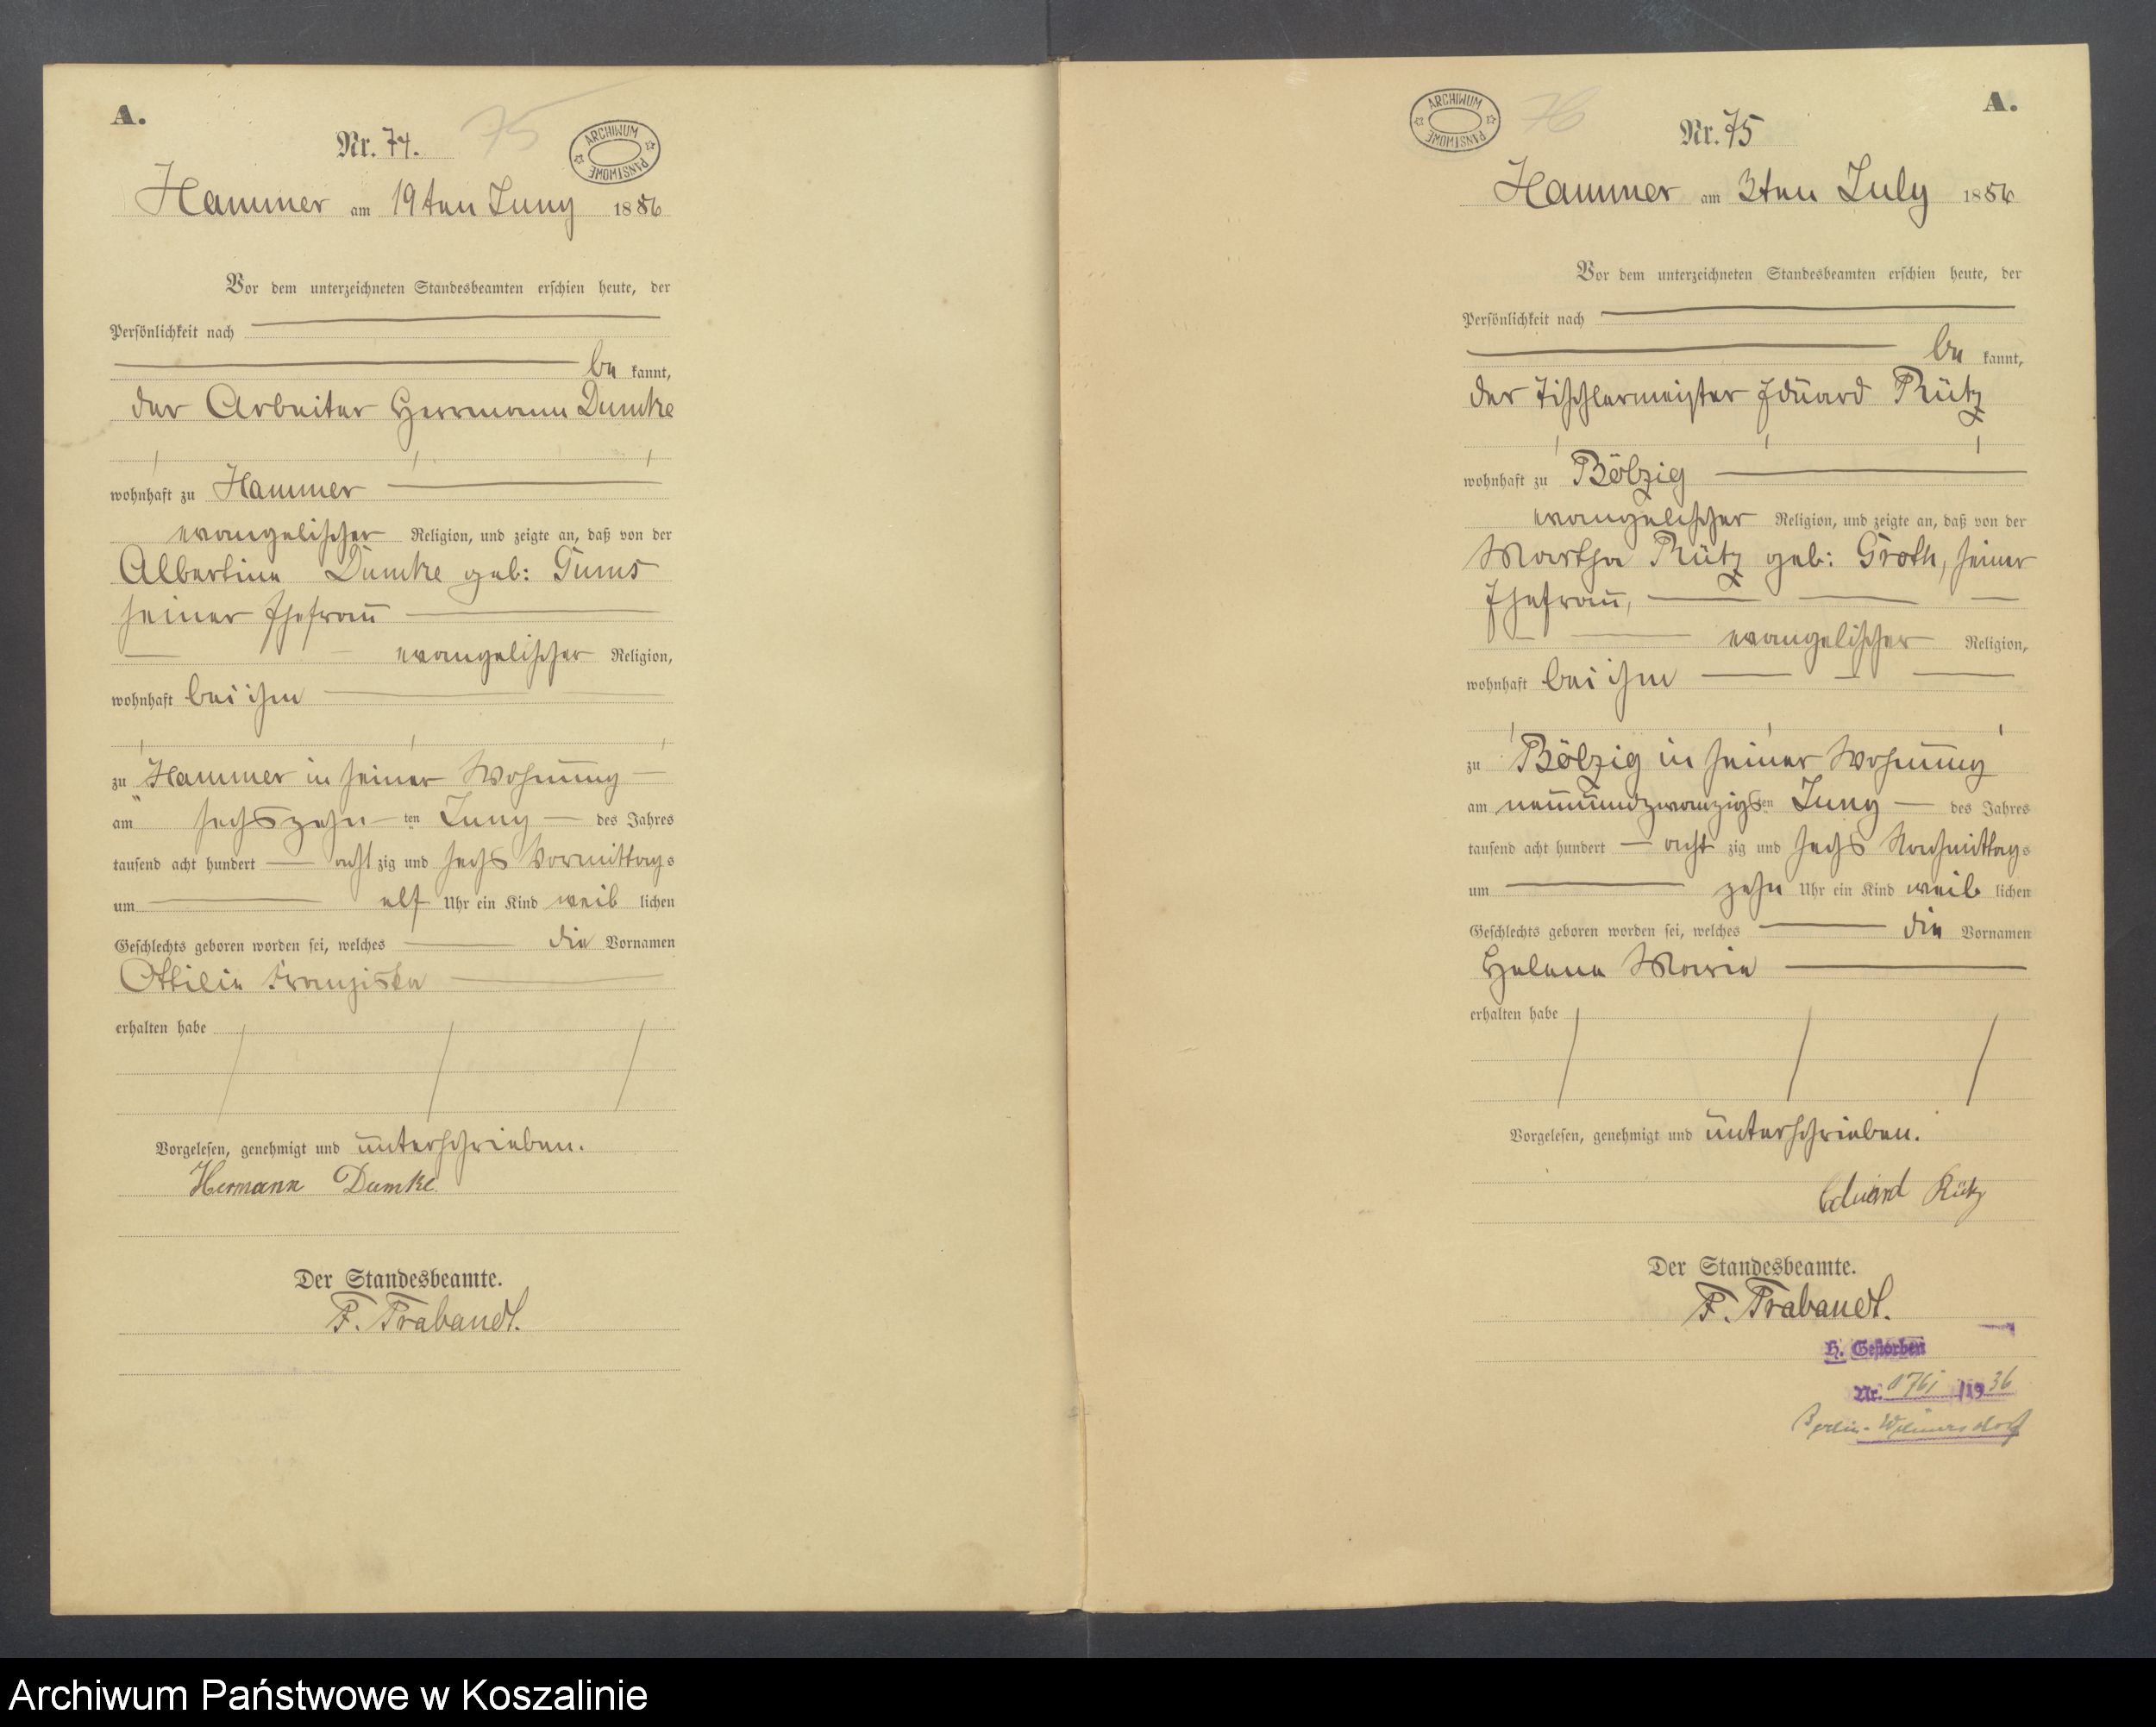 A.
Nr. 74.
75
ARCHIWUM PAŃSTWOWE
Hammer am 19ten Juny 1886
Vor dem unterzeichneten Standesbeamten erschien heute, der
Persönlichkeit nach
be kannt,
der Arbeiter Herrmann Dumke
wohnhaft zu Hammer
evangelischer Religion, und zeigte an, daß von der
Albertine Dumke geb: Gums
seiner Ehefrau
evangelischer Religion,
wohnhaft bei ihm
zu Hammer in seiner Wohnung
am sechszehn ten Juny des Jahres
tausend acht hundert acht zig und sechs Vormittags
um elf Uhr ein Kind weib lichen
Geschlechts geboren worden sei, welches die Vornamen
Ottilie Franziska
erhalten habe
Vorgelesen, genehmigt und unterschrieben.
Hermann Dumke
Der Standesbeamte.
F. Trabandt.
A.
ARCHIWUM PAŃSTWOWE
76
Nr. 75
Hammer am 3ten July 1886
Vor dem unterzeichneten Standesbeamten erschien heute, der
Persönlichkeit nach
be kannt,
der Tischlermeister Eduard Rütz
wohnhaft zu Bölzig
evangelischer Religion, und zeigte an, daß von der
Martha Rütz geb: Groth, seiner
Ehefrau,
evangelischer Religion,
wohnhaft bei ihm
zu Bölzig in seiner Wohnung
am neunundzwanzigsten Juny des Jahres
tausend acht hundert acht zig und sechs Nachmittags
um zehn Uhr ein Kind weib lichen
Geschlechts geboren worden sei, welches die Vornamen
Helene Marie
erhalten habe
Vorgelesen, genehmigt und unterschrieben.
Eduard Rütz
Der Standesbeamte.
F. Trabandt.
H. Gestorben
Nr. /1936
Berlin-Wilmersdorf
Archiwum Państwowe w Koszalinie